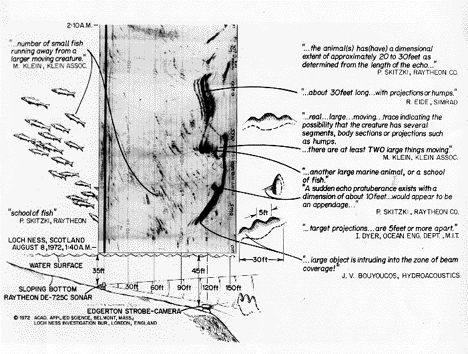 2:10 A.M.
"...number of small fish
running away from a
larger moving creature."
M. KLEIN, KLEIN ASSOC.
"school of fish"
P. SKITZKI, RAYTHEON
LOCH NESS, SCOTLAND
AUGUST 8, 1972, 1:40 A.M.
WATER SURFACE
SLOPING BOTTOM
RAYTHEON DE-725C SONAR
EDGERTON STROBE-CAMERA
© 1972 ACAD. APPLIED SCIENCE, BELMONT, MASS.,
LOCH NESS INVESTIGATION BUR., LONDON, ENGLAND
35ft
45ft
90ft
120ft
150ft
"...the animal(s) has(have) a dimensional
extent of approximately 20 to 30 feet as
determined from the length of the echo..."
P. SKITZKI, RAYTHEON CO.
"...about 30 feet long...with projections or humps."
R. EIDE, SIMRAD
"...real...large...moving...trace indicating the
possibility that the creature has several
segments, body sections or projections such
as humps.
"...there are at least TWO large things moving"
M. KLEIN, KLEIN ASSOC.
"...another large marine animal, or a school
of fish."
"A sudden echo protuberance exists with a
dimension of about 10 feet...would appear to be
an appendage..."
P. SKITZKI, RAYTHEON CO.
5ft
"...target projections... are 5 feet or more apart."
I. DYER, OCEAN ENG. DEPT., M.I.T.
30ft
"...large object is intruding into the zone of beam
coverage!"
J. V. BOUYOUCOS, HYDROACOUSTICS